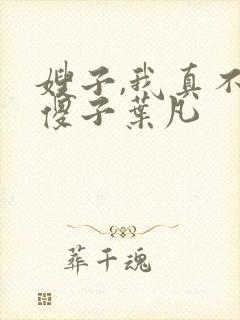 嫂子,我真不
傻子葉凡
葬千魂